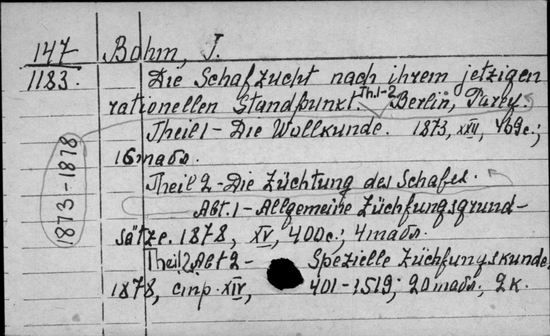 147
1183.
Bohm, J.
Die Schafzucht nach ihrem jetzigen
rationellen Standpunkt. Th.1-2 Berlin, Parey.
Theil 1 - Die Wollkunde. 1873, XXII, 469c.;
16 табл.
1873-1878
Theil 2 - Die Züchtung des Schafes.
Abt. 1 - Allgemeine Züchfungsgrund-
sätze. 1878, XV, 400c.; 4 табл.
Theil 2 Abt 2 - Spezielle Züchfungskunde.
1878, стр. XIV, 401-1519; 20 табл., 2к.